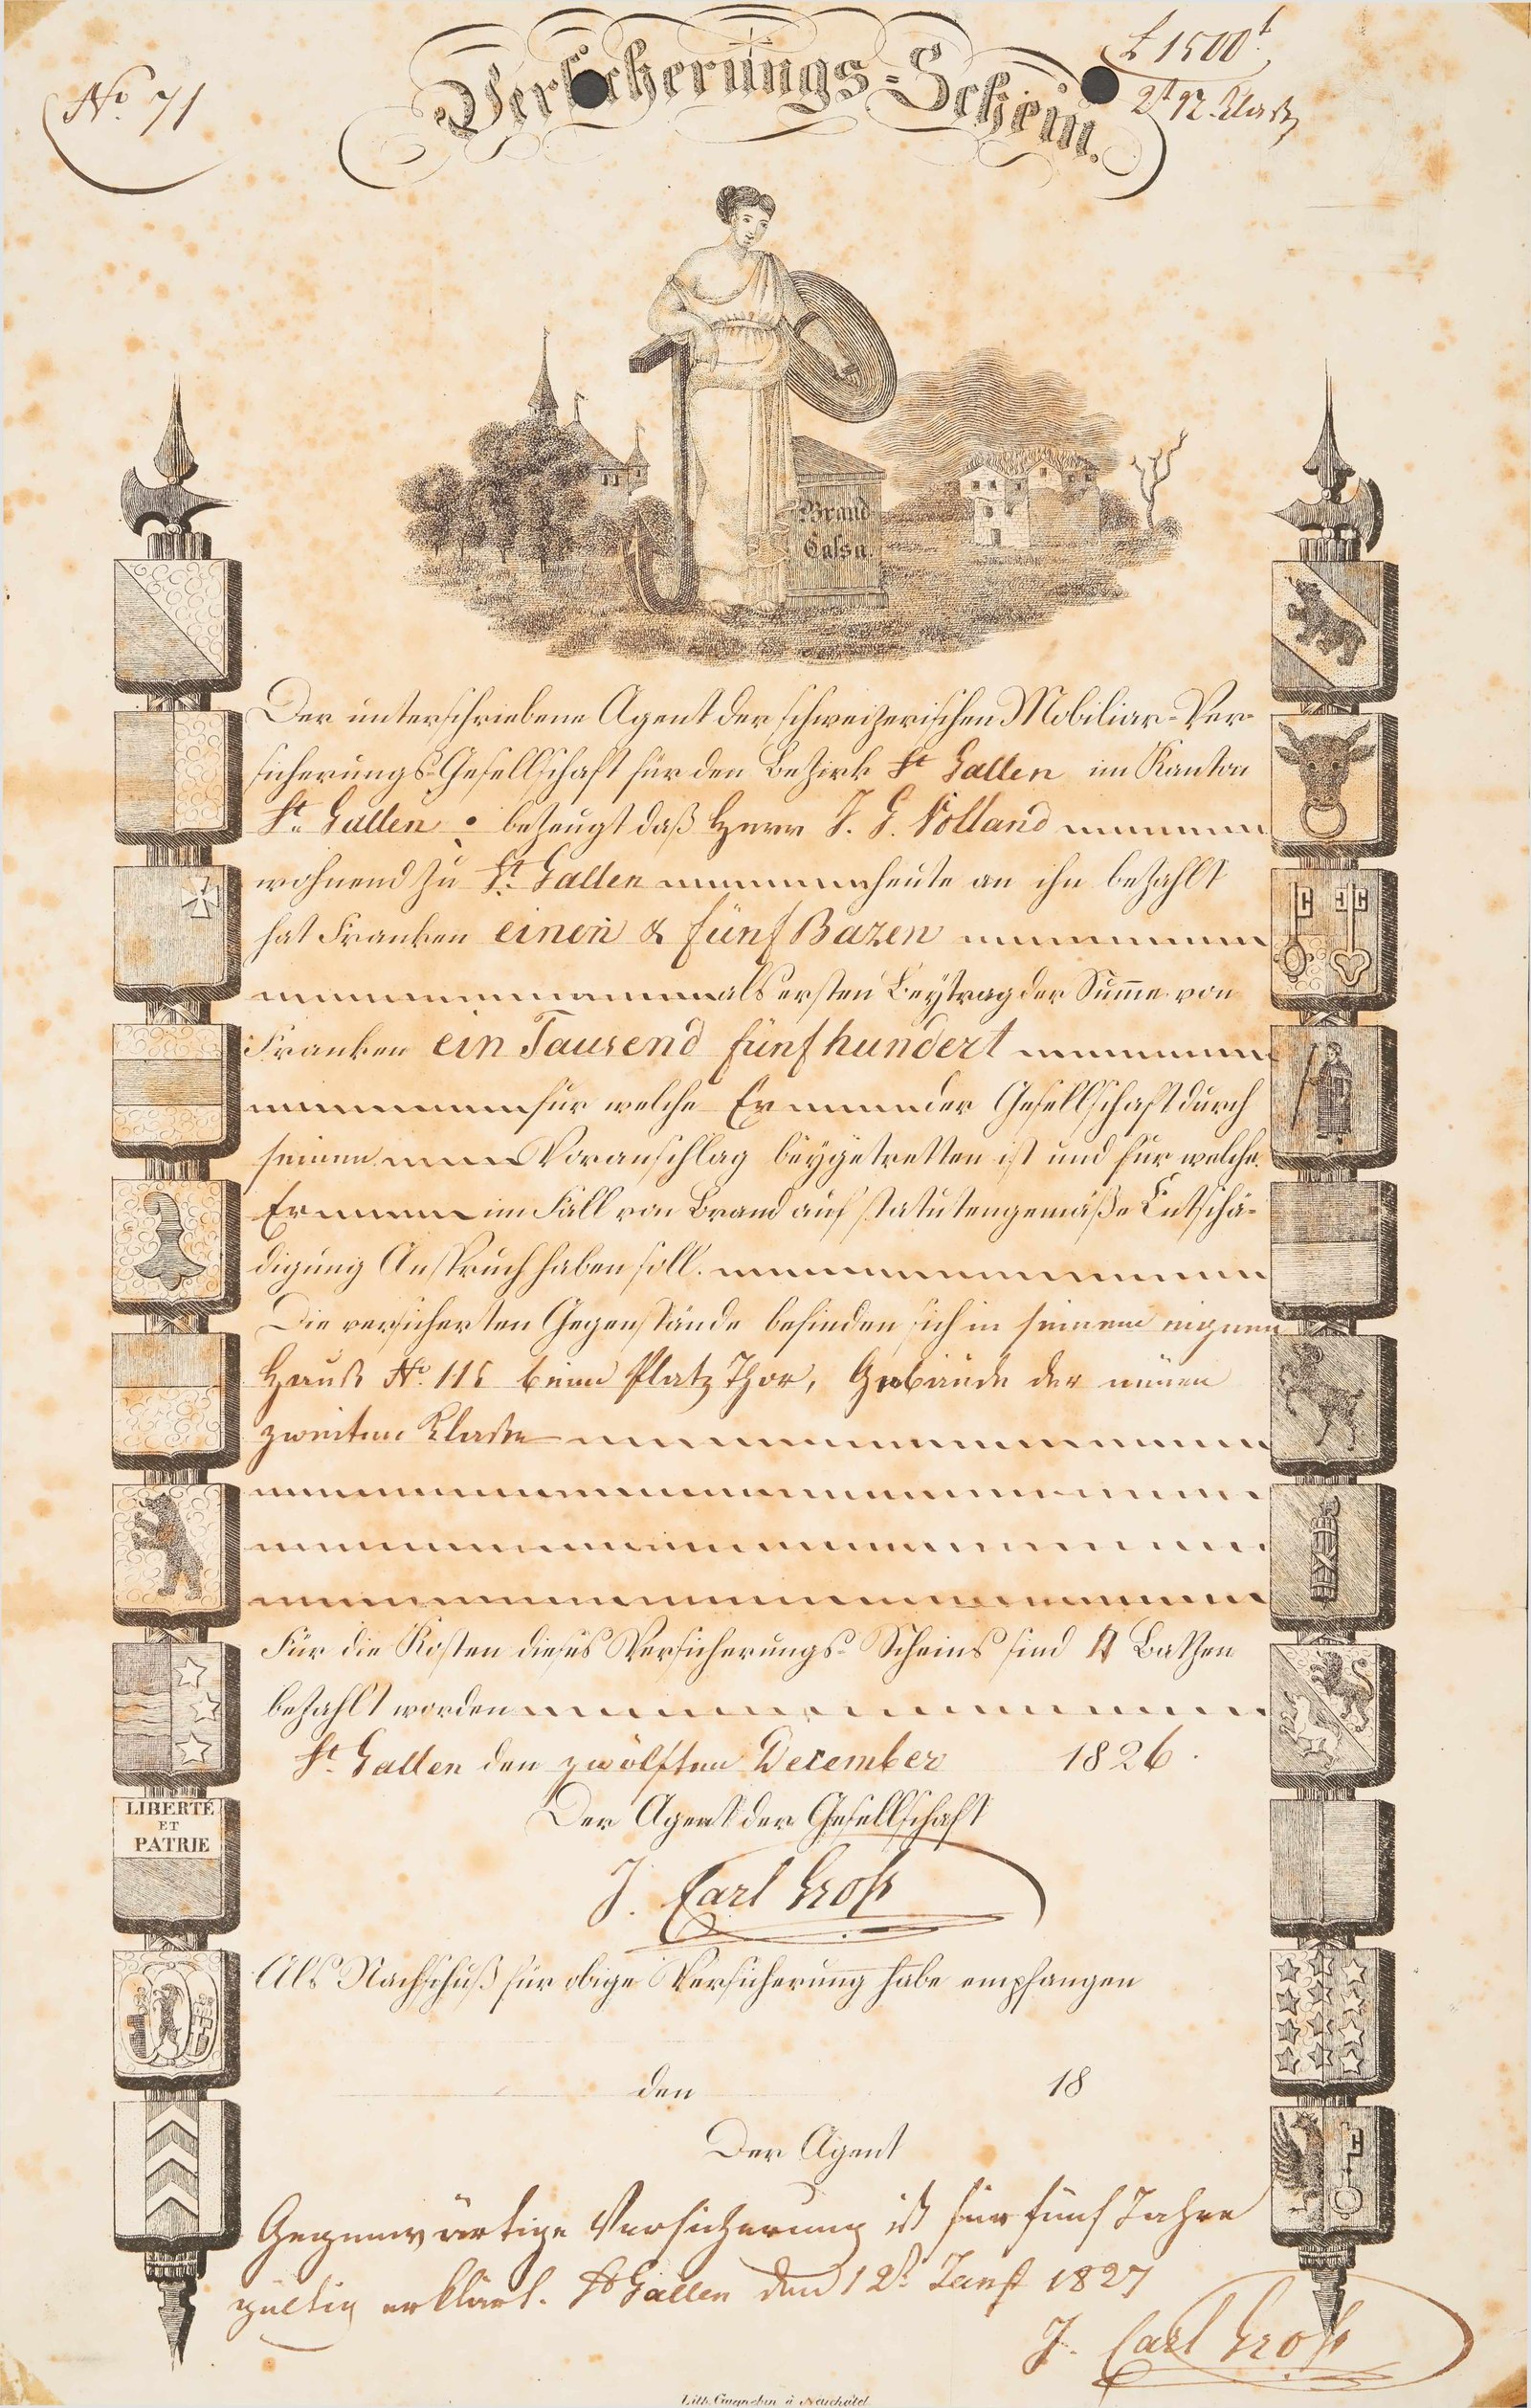 No 71
Versicherungs-Schein.
£ 1500
Brand
Cassa.
Der unterschriebene Agent der schweizerischen Mobiliar-Ver-
sicherungs-Gesellschaft für den Bezirk St Gallen im Kanton
St. Gallen bezeugt daß Herr J. G. Volland
wohnend zu St. Gallen heute an ihn bezahlt
hat Franken einen & fünf Bazen
als ersten Beytrag der Summe von
Franken ein Tausend fünfhundert
für welche Er der Gesellschaft durch
seinen Voranschlag beygetretten ist und für welche
Er im Fall von Brand auf statutengemäße Entschä-
digung Anspruch haben soll.
Die versicherten Gegenstände befinden sich in seinem eignen
Hauß No. 115 beim Platz Thor, Gebäude der neüen
zweiten Klasse
Für die Kosten dieses Versicherungs-Scheins sind Batzen
bezahlt worden
St. Gallen den zwölften December 1826.
Der Agent der Gesellschaft
J. Carl Groß
LIBERTÉ
ET
PATRIE
Als Nachschuß für obige Versicherung habe empfangen
den 18
Der Agent
Gegenwärtige Versicherung ist für fünf Jahre
gültig erklärt. St Gallen den 12t 1827
J. Carl Groß
Lith. à Neuchâtel